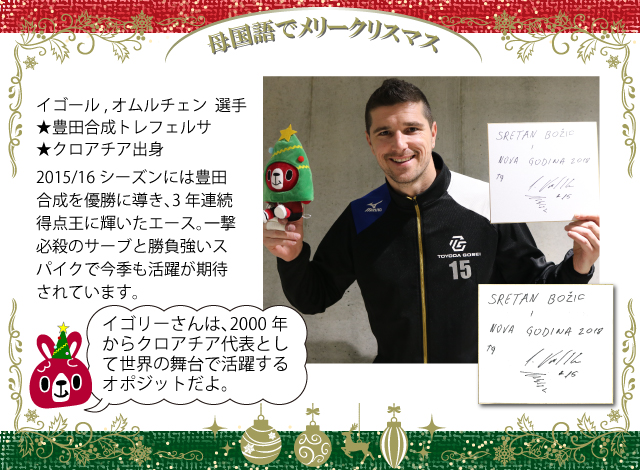 母国語でメリークリスマス
イゴール , オムルチェン 選手
★豊田合成トレフェルサ
★クロアチア出身
2015/16 シーズンには豊田
合成を優勝に導き、3 年連続
得点王に輝いたエース。一撃
必殺のサーブと勝負強いス
パイクで今季も活躍が期待
されています。
イゴリーさんは、2000 年
からクロアチア代表とし
て世界の舞台で活躍する
オポジットだよ。
SRETAN BOŽIC
I
NOVA GODINA 2018
MIZUNO
TG
TOYODA GOSEI
15
SRETAN BOŽIC
I
NOVA GODINA 2018
TG
#15